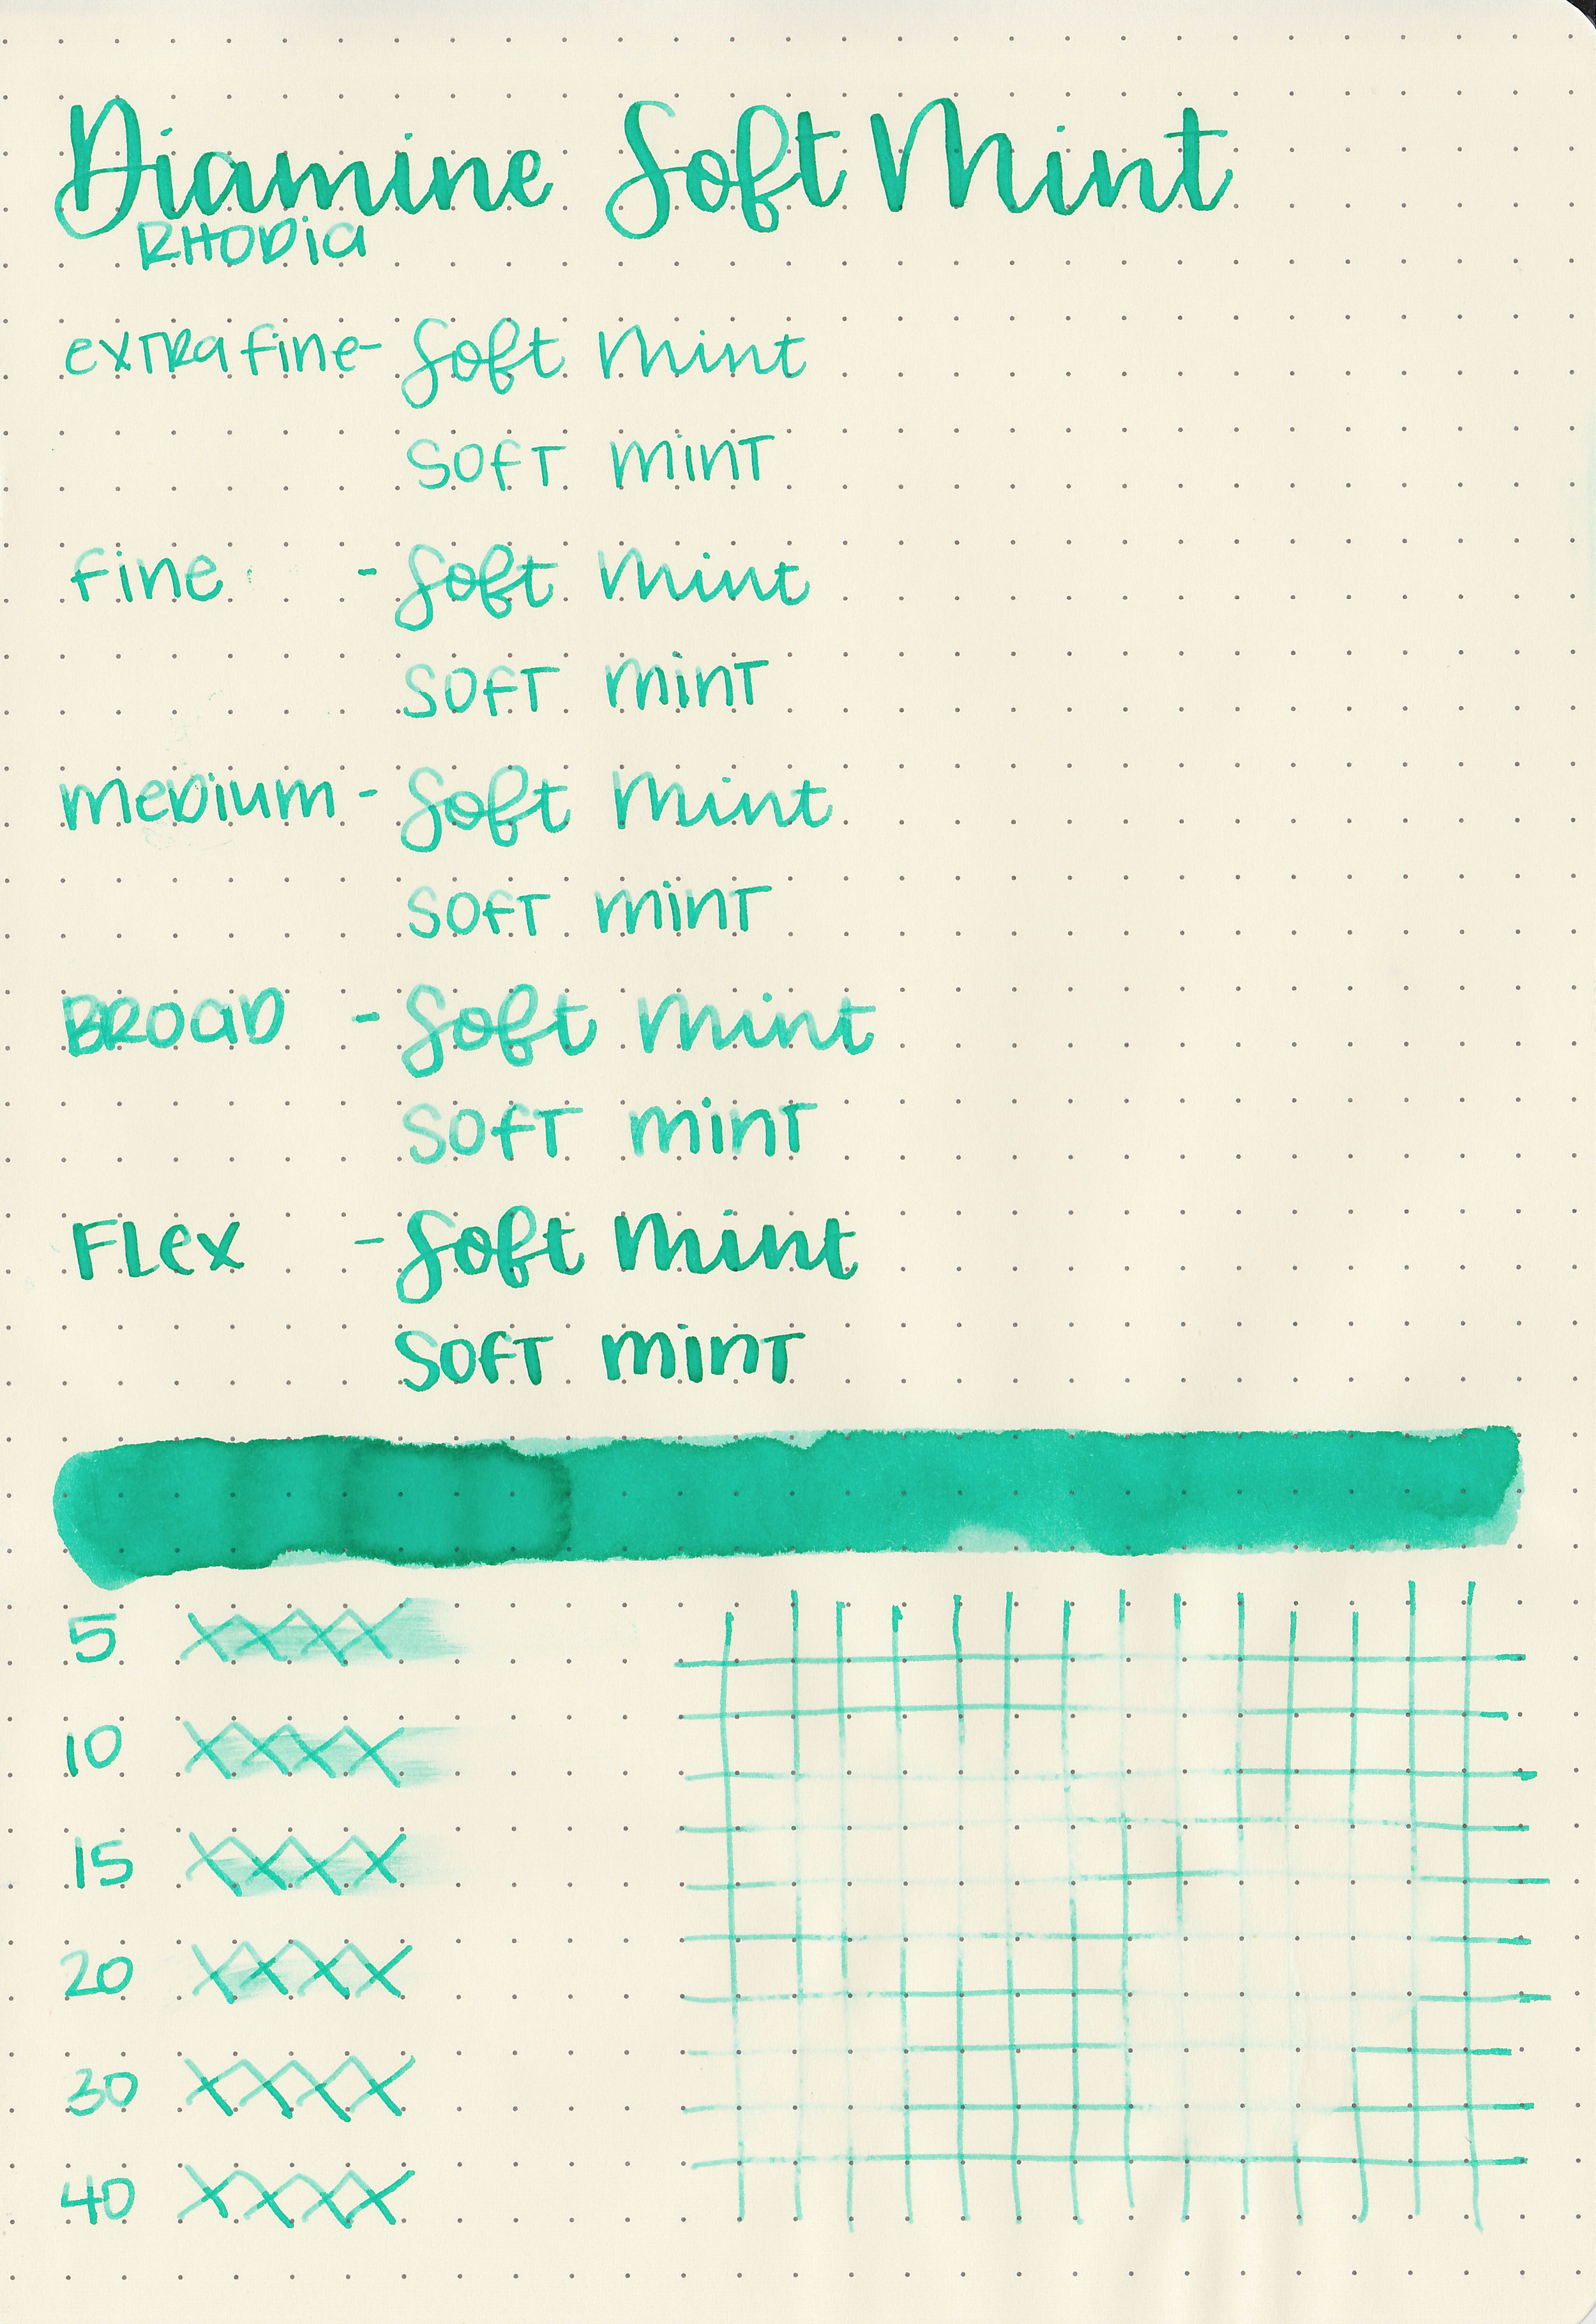 Diamine Soft Mint
RHODia
extra fine - Soft Mint
SOFT mint
fine - Soft Mint
SOFT mint
meDium - Soft Mint
SOFT mint
BROAD - Soft Mint
SOFT mint
FLex - Soft Mint
SOFT mint
5 XXXX
10 XXXX
15 XXXX
20 XXXX
30 XXXX
40 XXXX